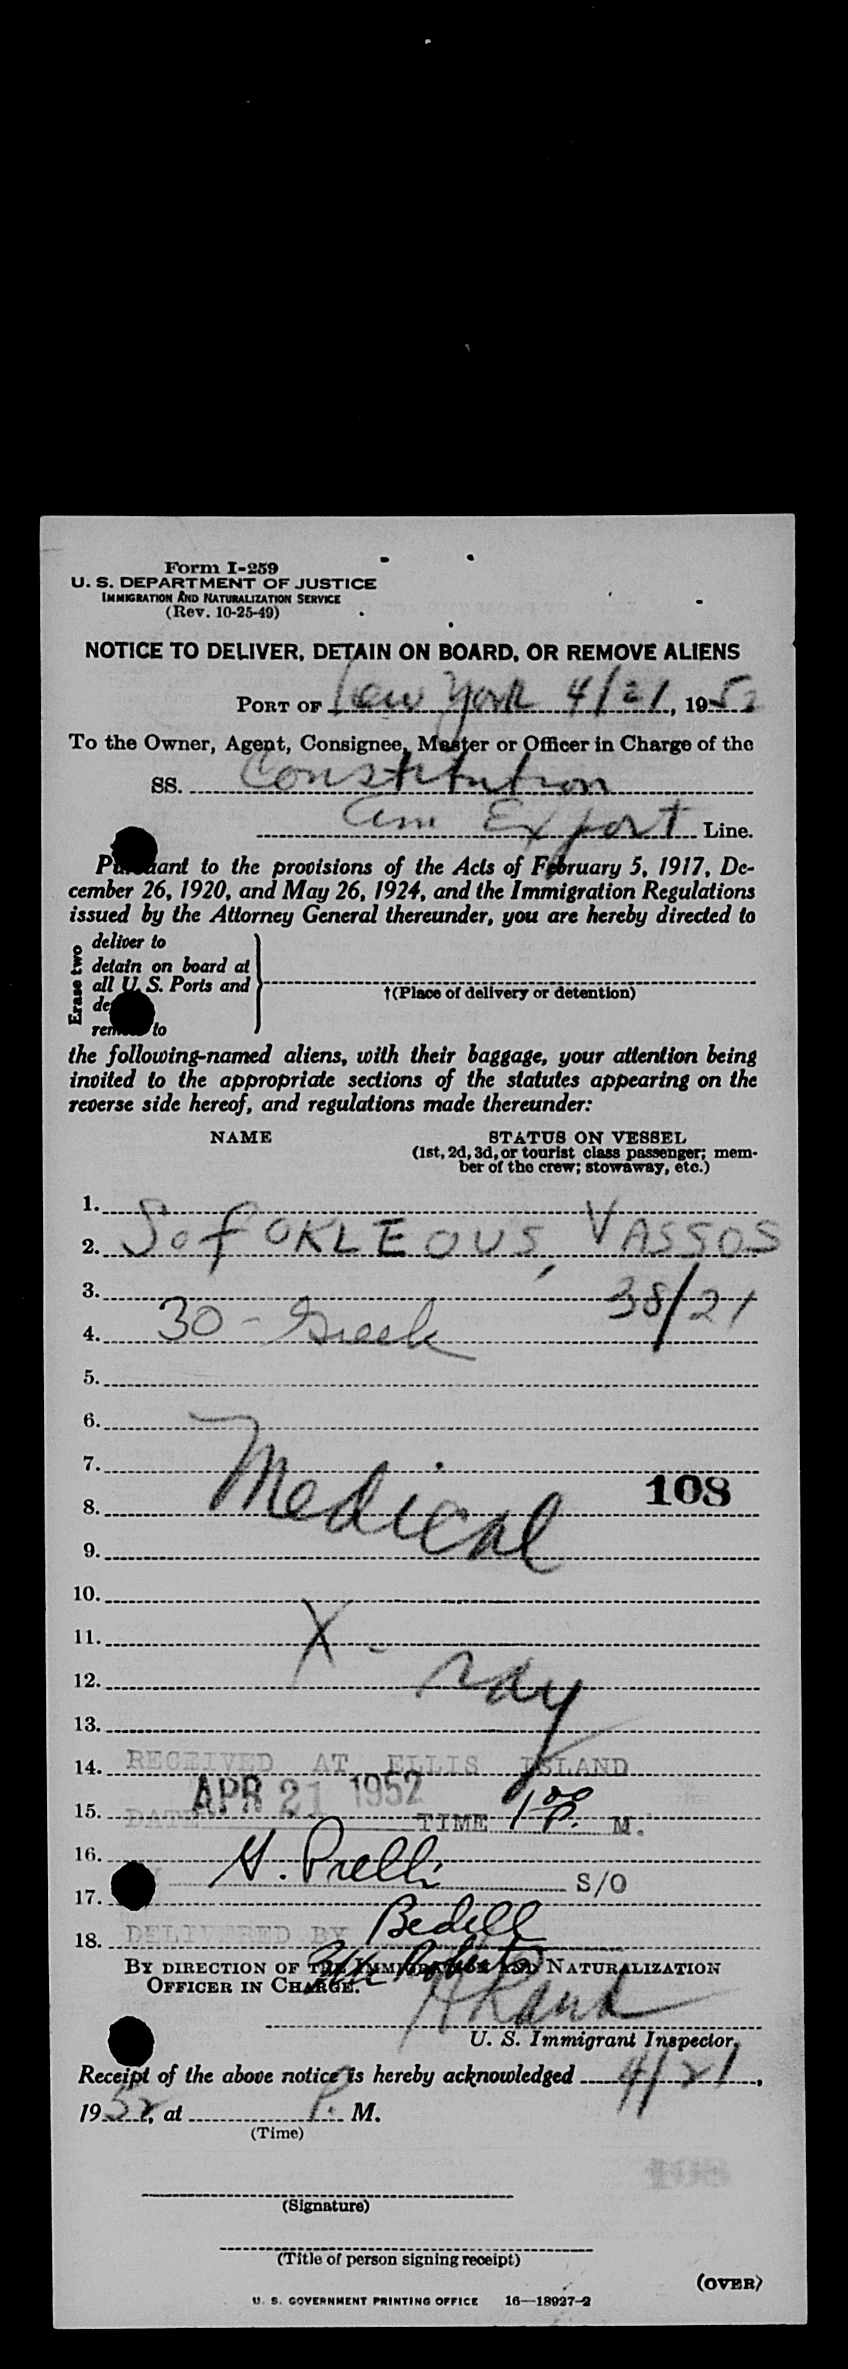 Form I-259
U. S. DEPARTMENT OF JUSTICE
IMMIGRATION AND NATURALIZATION SERVICE
(Rev. 10-25-49)
NOTICE TO DELIVER, DETAIN ON BOARD, OR REMOVE ALIENS
PORT OF New York 4/21, 1952
To the Owner, Agent, Consignee, Master or Officer in Charge of the
SS. Constitution
Am Export Line.
Pursuant to the provisions of the Acts of February 5, 1917, De-
cember 26, 1920, and May 26, 1924, and the Immigration Regulations
issued by the Attorney General thereunder, you are hereby directed to
Erase two
deliver to
detain on board at
all U. S. Ports and
†(Place of delivery or detention)
remove to
the following-named aliens, with their baggage, your attention being
invited to the appropriate sections of the statutes appearing on the
reverse side hereof, and regulations made thereunder:
NAME STATUS ON VESSEL
(1st, 2d, 3d, or tourist class passenger; mem-
ber of the crew; stowaway, etc.)
1.
2. SofOKLEOUS, VASSOS
3. 38/21
4. 30 - Greek
5.
6.
7.
8. Medical 108
9.
10.
11. X-
12. ray
13.
14. RECEIVED AT ELLIS ISLAND
APR 21 1952
15. DATE TIME 1 00 P. M.
16.
G. Prelli S/O
17.
18. DELIVERED BY Bedell
BY DIRECTION OF THE IMMIGRATION AND NATURALIZATION
OFFICER IN CHARGE.
U. S. Immigrant Inspector.
Receipt of the above notice is hereby acknowledged 4/21,
1952, at P. M.
(Time)
(Signature)
(Title of person signing receipt)
(OVER)
U. S. GOVERNMENT PRINTING OFFICE 16—18927-2